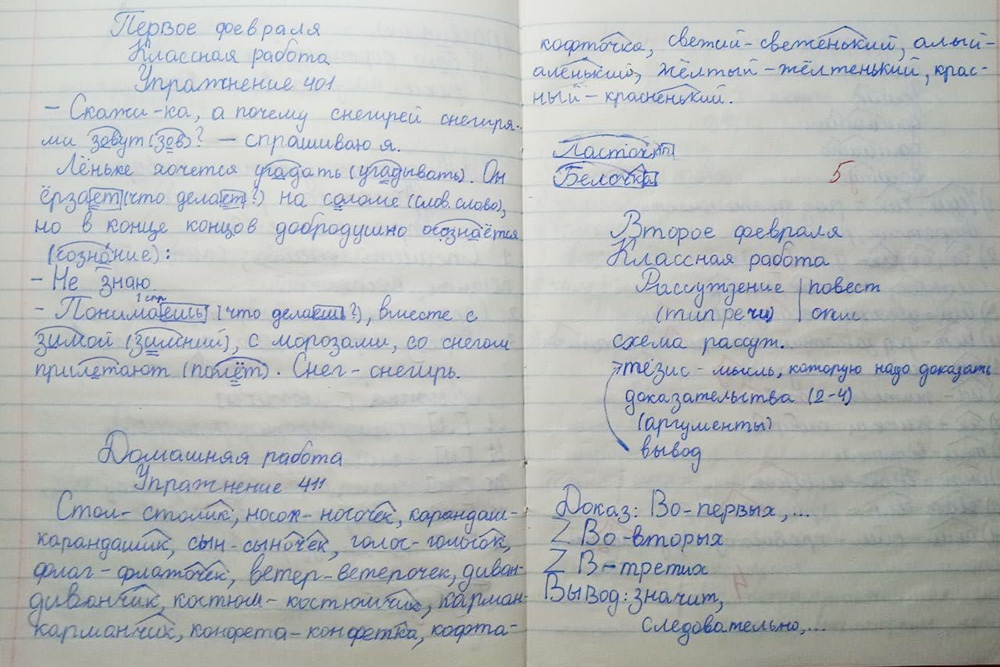 Первое февраля
Классная работа
Упражнение 401
- Скажи-ка, а почему снегирей снегиря-
ми зовут (зов)? - спрашиваю я.
Лёньке хочется угадать (угадывать). Он
ёрзает (что делает?) на соломе (слов. слово),
но в конце концов добродушно осознаётся
(сознание):
- Не знаю.
1 спр.
- Понимаешь (что делаешь?), вместе с
зимой (зимний), с морозами, со снегом
прилетают (полёт). Снег - снегирь.
Домашняя работа
Упражнение 411
Стол - столик, носок - носочек, карандаш -
карандашик, сын - сыночек, голос - голосок,
флаг - флаточек, ветер - ветерочек, диван -
диванчик, костюм - костюмчик, карман -
карманчик, конфета - конфетка, кофта -
кофточка, светий - свеженький, алый -
аленький, жёлтый - жёлтенький, крас-
ный - красненький.
Ласточка
Белочка
5
Второе февраля
Классная работа
Рассутжение | повест
(тип речи) | опис
схема рассут.
тезис - мысль, которую надо доказать
доказательства (2-4)
(аргументы)
вывод
Доказ: Во-первых,...
Z Во-вторых
Z В-третих
Вывод: значит,
следовательно,...